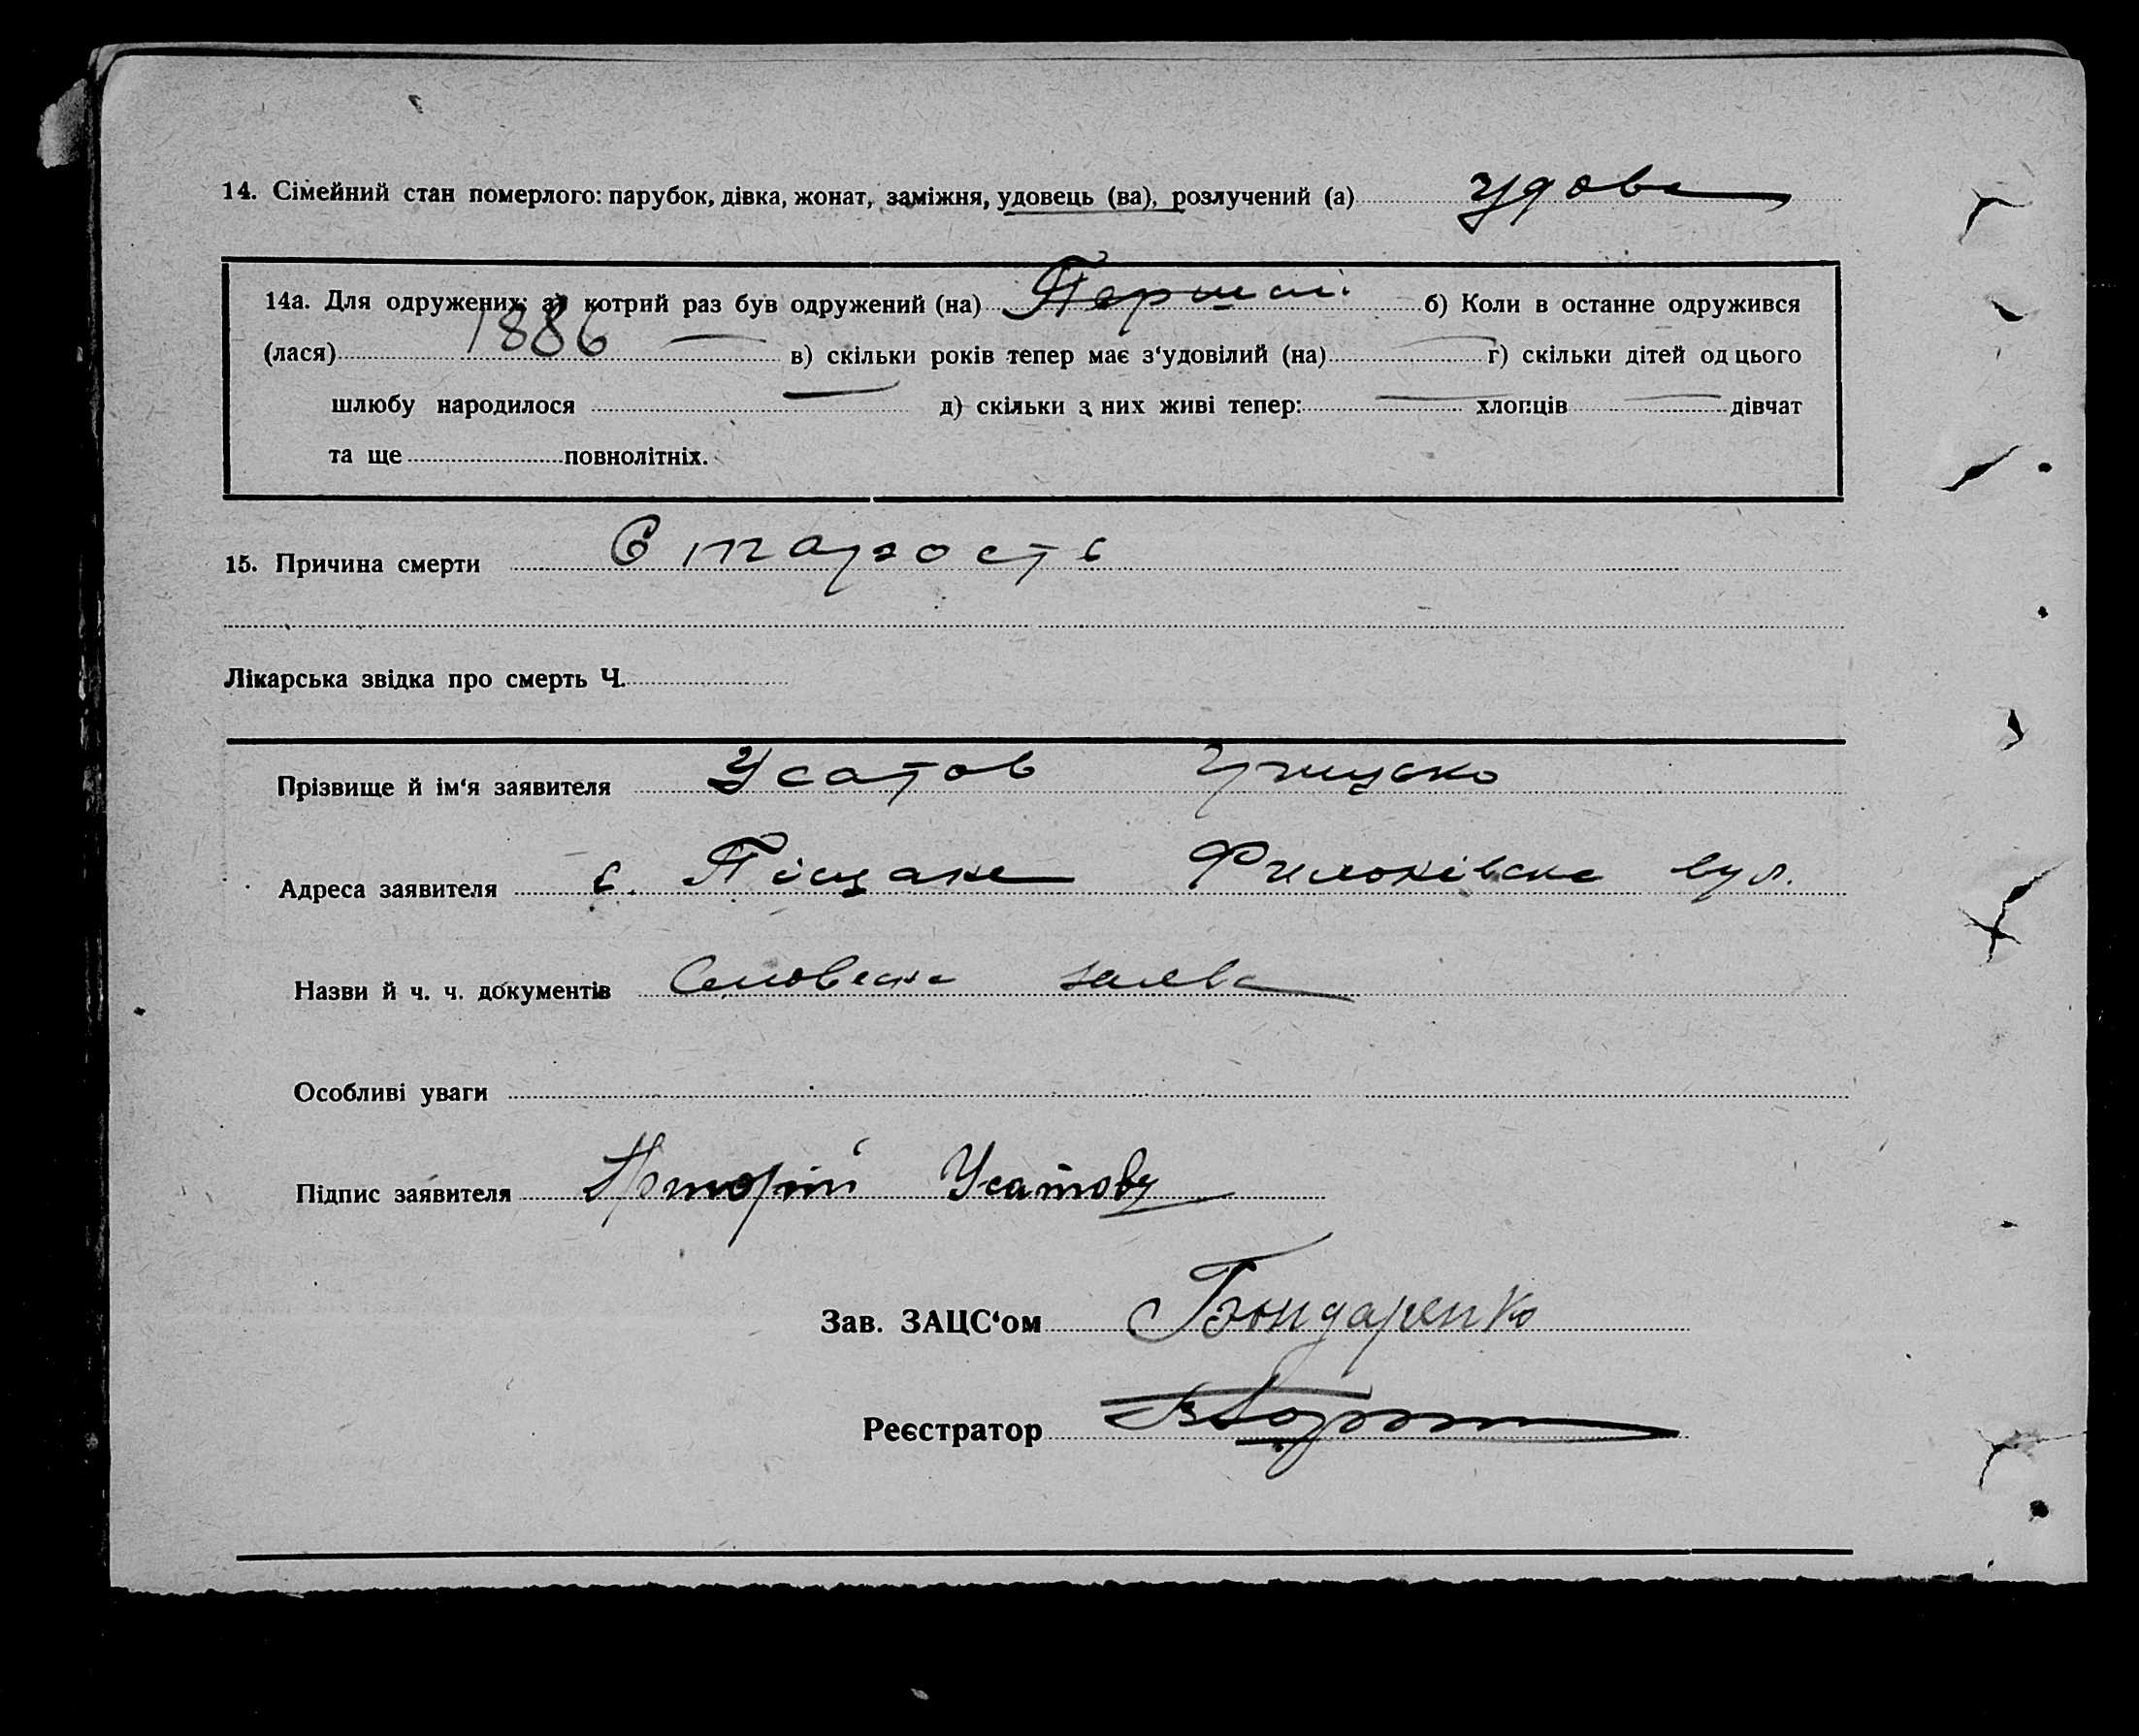 14. Сімейний стан померлого: парубок, дівка, жонат, заміжня, удовець (ва), розлучений (а) удова
14а. Для одружених: а) котрий раз був одружений (на) Перший б) Коли в останне одружився
(лася) 1886 — в) скільки років тепер має з‘удовілий (на) — г) скільки дітей од цього
шлюбу народилося — д) скільки з них живі тепер: — хлопців — дівчат
та ще повнолітніх.
15. Причина смерти Старость
Лікарська звідка про смерть Ч.
Прізвище й ім‘я заявителя Усатов Грицько
Адреса заявителя с. Піщане вул.
Назви й ч. ч. документів Словесна заява
Особливі уваги
Підпис заявителя Усатову
Зав. ЗАЦС‘ом Бондаренко
Реєстратор